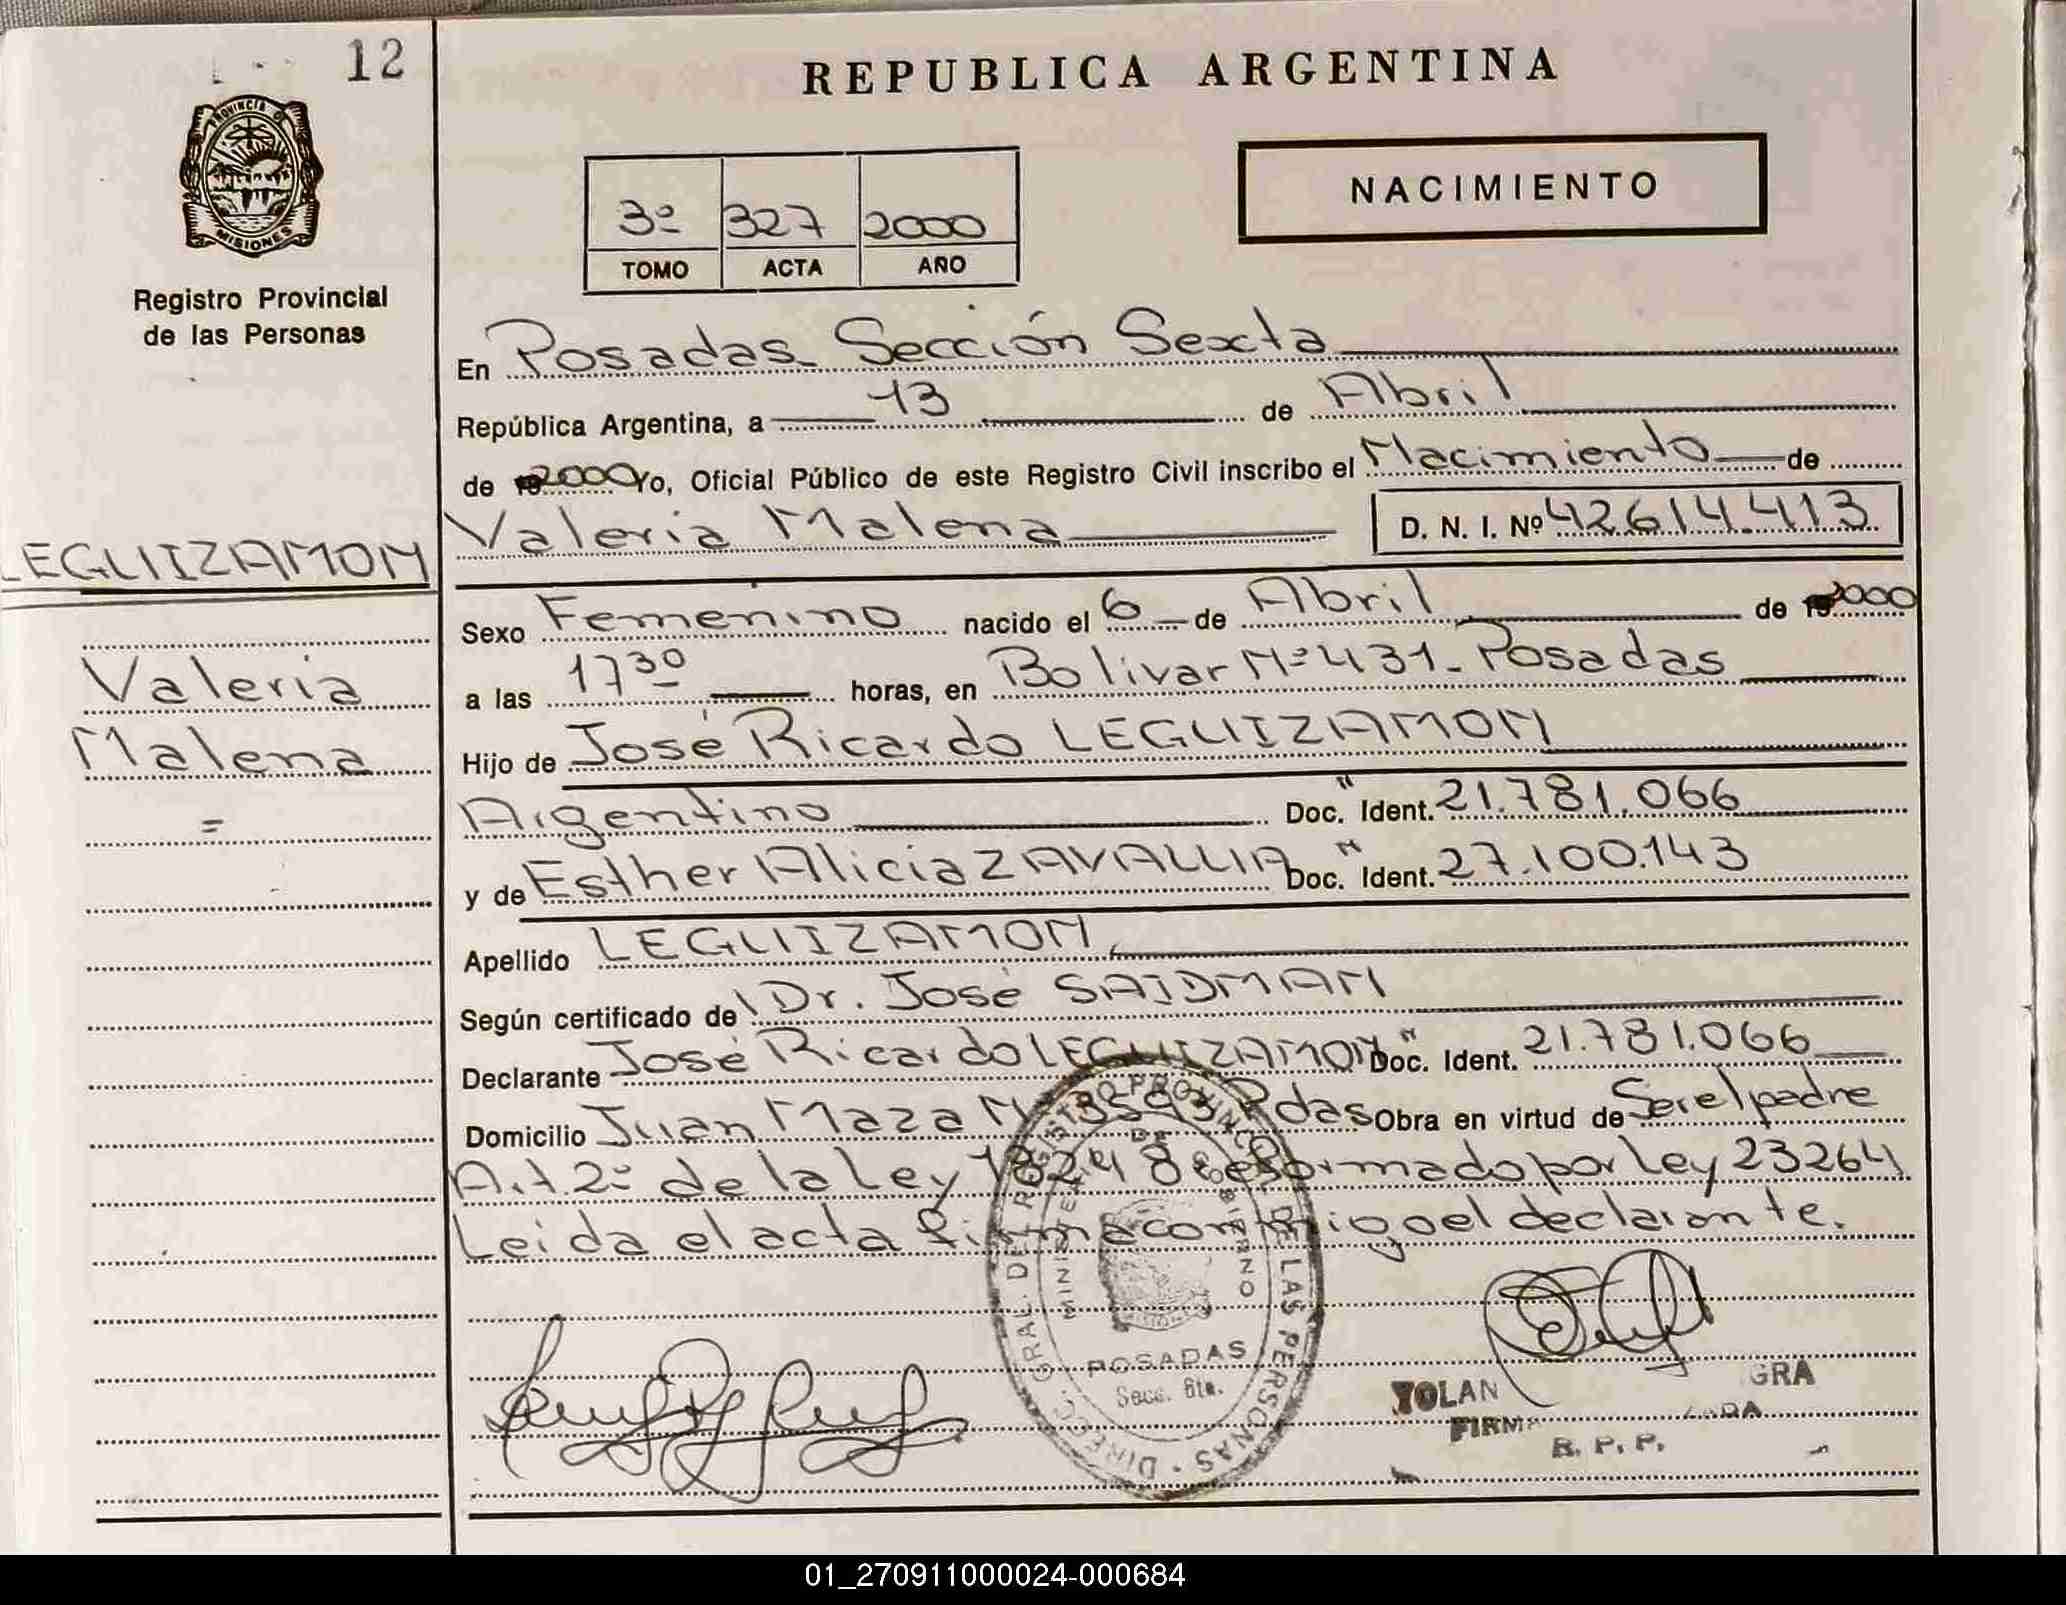 12
REPUBLICA ARGENTINA
PROVINCIA DE
MISIONES
Registro Provincial
de las Personas
NACIMIENTO
3º 327 2000
TOMO ACTA AÑO
En Posadas - Sección Sexta
República Argentina, a 13 de Abril
de 2000 Yo, Oficial Público de este Registro Civil inscribo el Nacimiento de
Valeria Malena D. N. I. Nº 42614.413
LEGUIZAMON
Valeria
Malena
=
Sexo Femenino nacido el 6 de Abril de 2000
a las 17 30 horas, en Bolivar Nº 431 - Posadas
Hijo de José Ricardo LEGUIZAMON
Argentino Doc. Ident. 21.781.066
y de Esther Alicia ZAVALLIA Doc. Ident. 27.100.143
Apellido LEGUIZAMON
Según certificado de Dr. José SAIDMAN
Declarante José Ricardo LEGUIZAMON Doc. Ident. 21.781.066
Domicilio Juan Maza Nº 3593 Pdas Obra en virtud de Ser el padre
Art. 2º de la Ley 18248 reformado por Ley 23264
Leida el acta firma conmigo el declarante.
DIRECC. GRAL. DEL REGISTRO PROVINCIAL DE LAS PERSONAS
MINISTERIO DE GOBIERNO
POSADAS
Secc. 6ta.
YOLAN GRA
FIRMA
R. P. P.
01_270911000024-000684